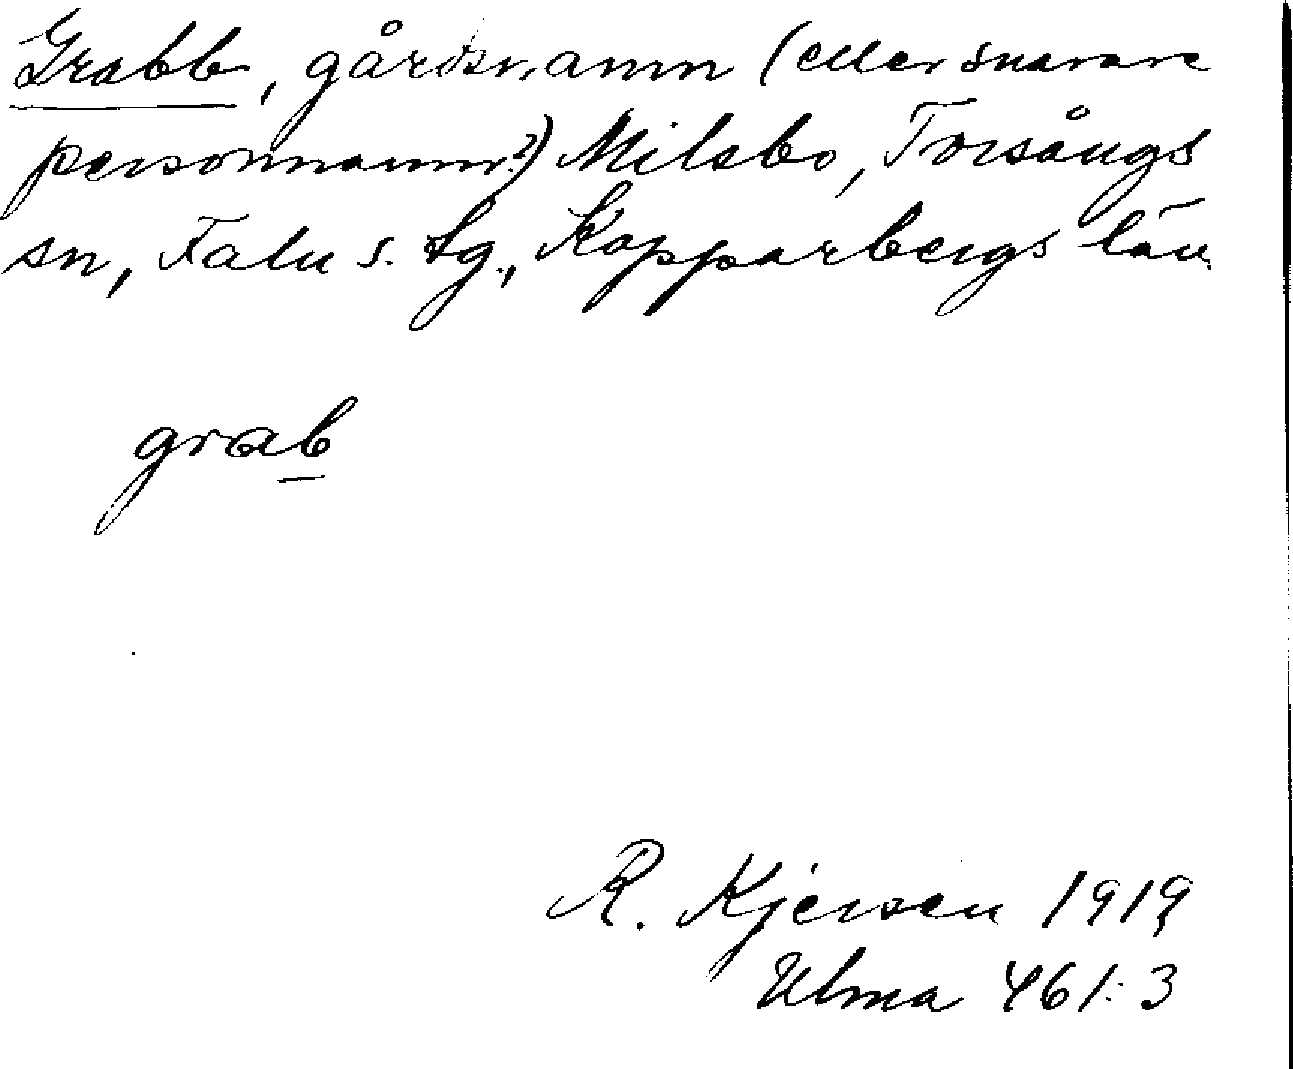 Grabb, gårdsnamn (eller snarare
personnamn?) Milsbo, Torsångs
sn, Falu s. tg., Kopparbergs län.
grab
R. Kjersen 1919
Ulma 461:3